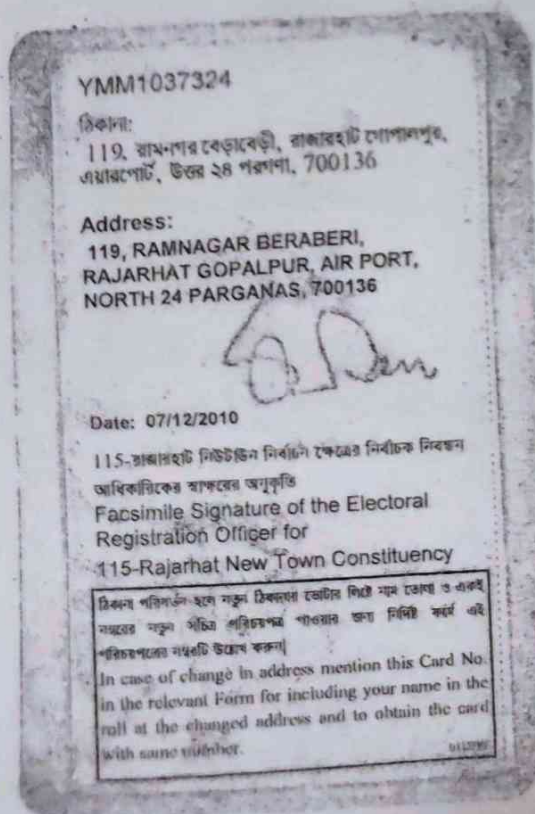 YMM1037324
ঠিকানা:
119, রামনগর বেড়াবেড়ী, রাজারহাট গোপালপুর,
এয়ারপোর্ট, উত্তর ২৪ পরগণা, 700136
Address:
119, RAMNAGAR BERABERI,
RAJARHAT GOPALPUR, AIR PORT,
NORTH 24 PARGANAS, 700136
Date: 07/12/2010
115-রাজারহাট নিউটাউন নির্বাচন ক্ষেত্রের নির্বাচক নিবন্ধন
আধিকারিকের স্বাক্ষরের অনুকৃতি
Facsimile Signature of the Electoral
Registration Officer for
115-Rajarhat New Town Constituency
ঠিকানা পরিবর্তন হলে নতুন ঠিকানায় ভোটার লিষ্টে নাম তোলা ও একই
নম্বরের নতুন সচিত্র পরিচয়পত্র পাওয়ার জন্য নির্দিষ্ট ফর্মে এই
পরিচয়পত্রের নম্বরটি উল্লেখ করুন।
In case of change in address mention this Card No.
in the relevant Form for including your name in the
roll at the changed address and to obtain the card
with same number.